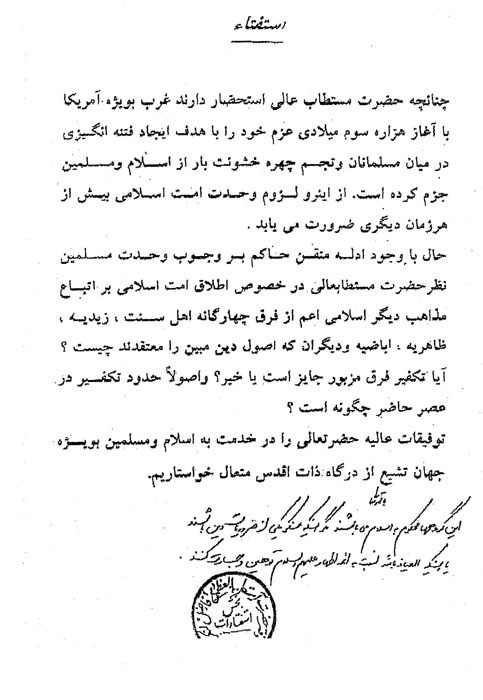 استفتاء
چنانچه حضرت مستطاب عالی استحضار دارند غرب بویژه آمریکا
با آغاز هزاره سوم میلادی عزم خود را با هدف ایجاد فتنه انگیزی
در میان مسلمانان وتجم چهره خشونت بار از اسلام ومسلمین
جزم کرده است. از اینرو لزوم وحدت امت اسلامی بیش از
هرزمان دیگری ضرورت می یابد .
حال با وجود ادله متقن حاکم بر وجوب وحدت مسلمین
نظرحضرت مستطابعالی در خصوص اطلاق امت اسلامی بر اتباع
مذاهب دیگر اسلامی اعم از فرق چهارگانه اهل سنت ، زیدیه ،
ظاهریه ، اباضیه ودیگران که اصول دین مبین را معتقدند چیست ؟
آیا تکفیر فرق مزبور جایز است یا خیر؟ واصولاً حدود تکفیر در
عصر حاضر چگونه است ؟
توفیقات عالیه حضرتعالی را در خدمت به اسلام ومسلمین بویژه
جهان تشیع از درگاه ذات اقدس متعال خواستاریم.
این گروهها محکوم به اسلام می باشند مگر اینکه منکر یکی از ضروریات دین باشند
یا اینکه العیاذ بالله نسبت به ائمه اطهار علیهم السلام توهین و جسارت کنند .
استفتاءات